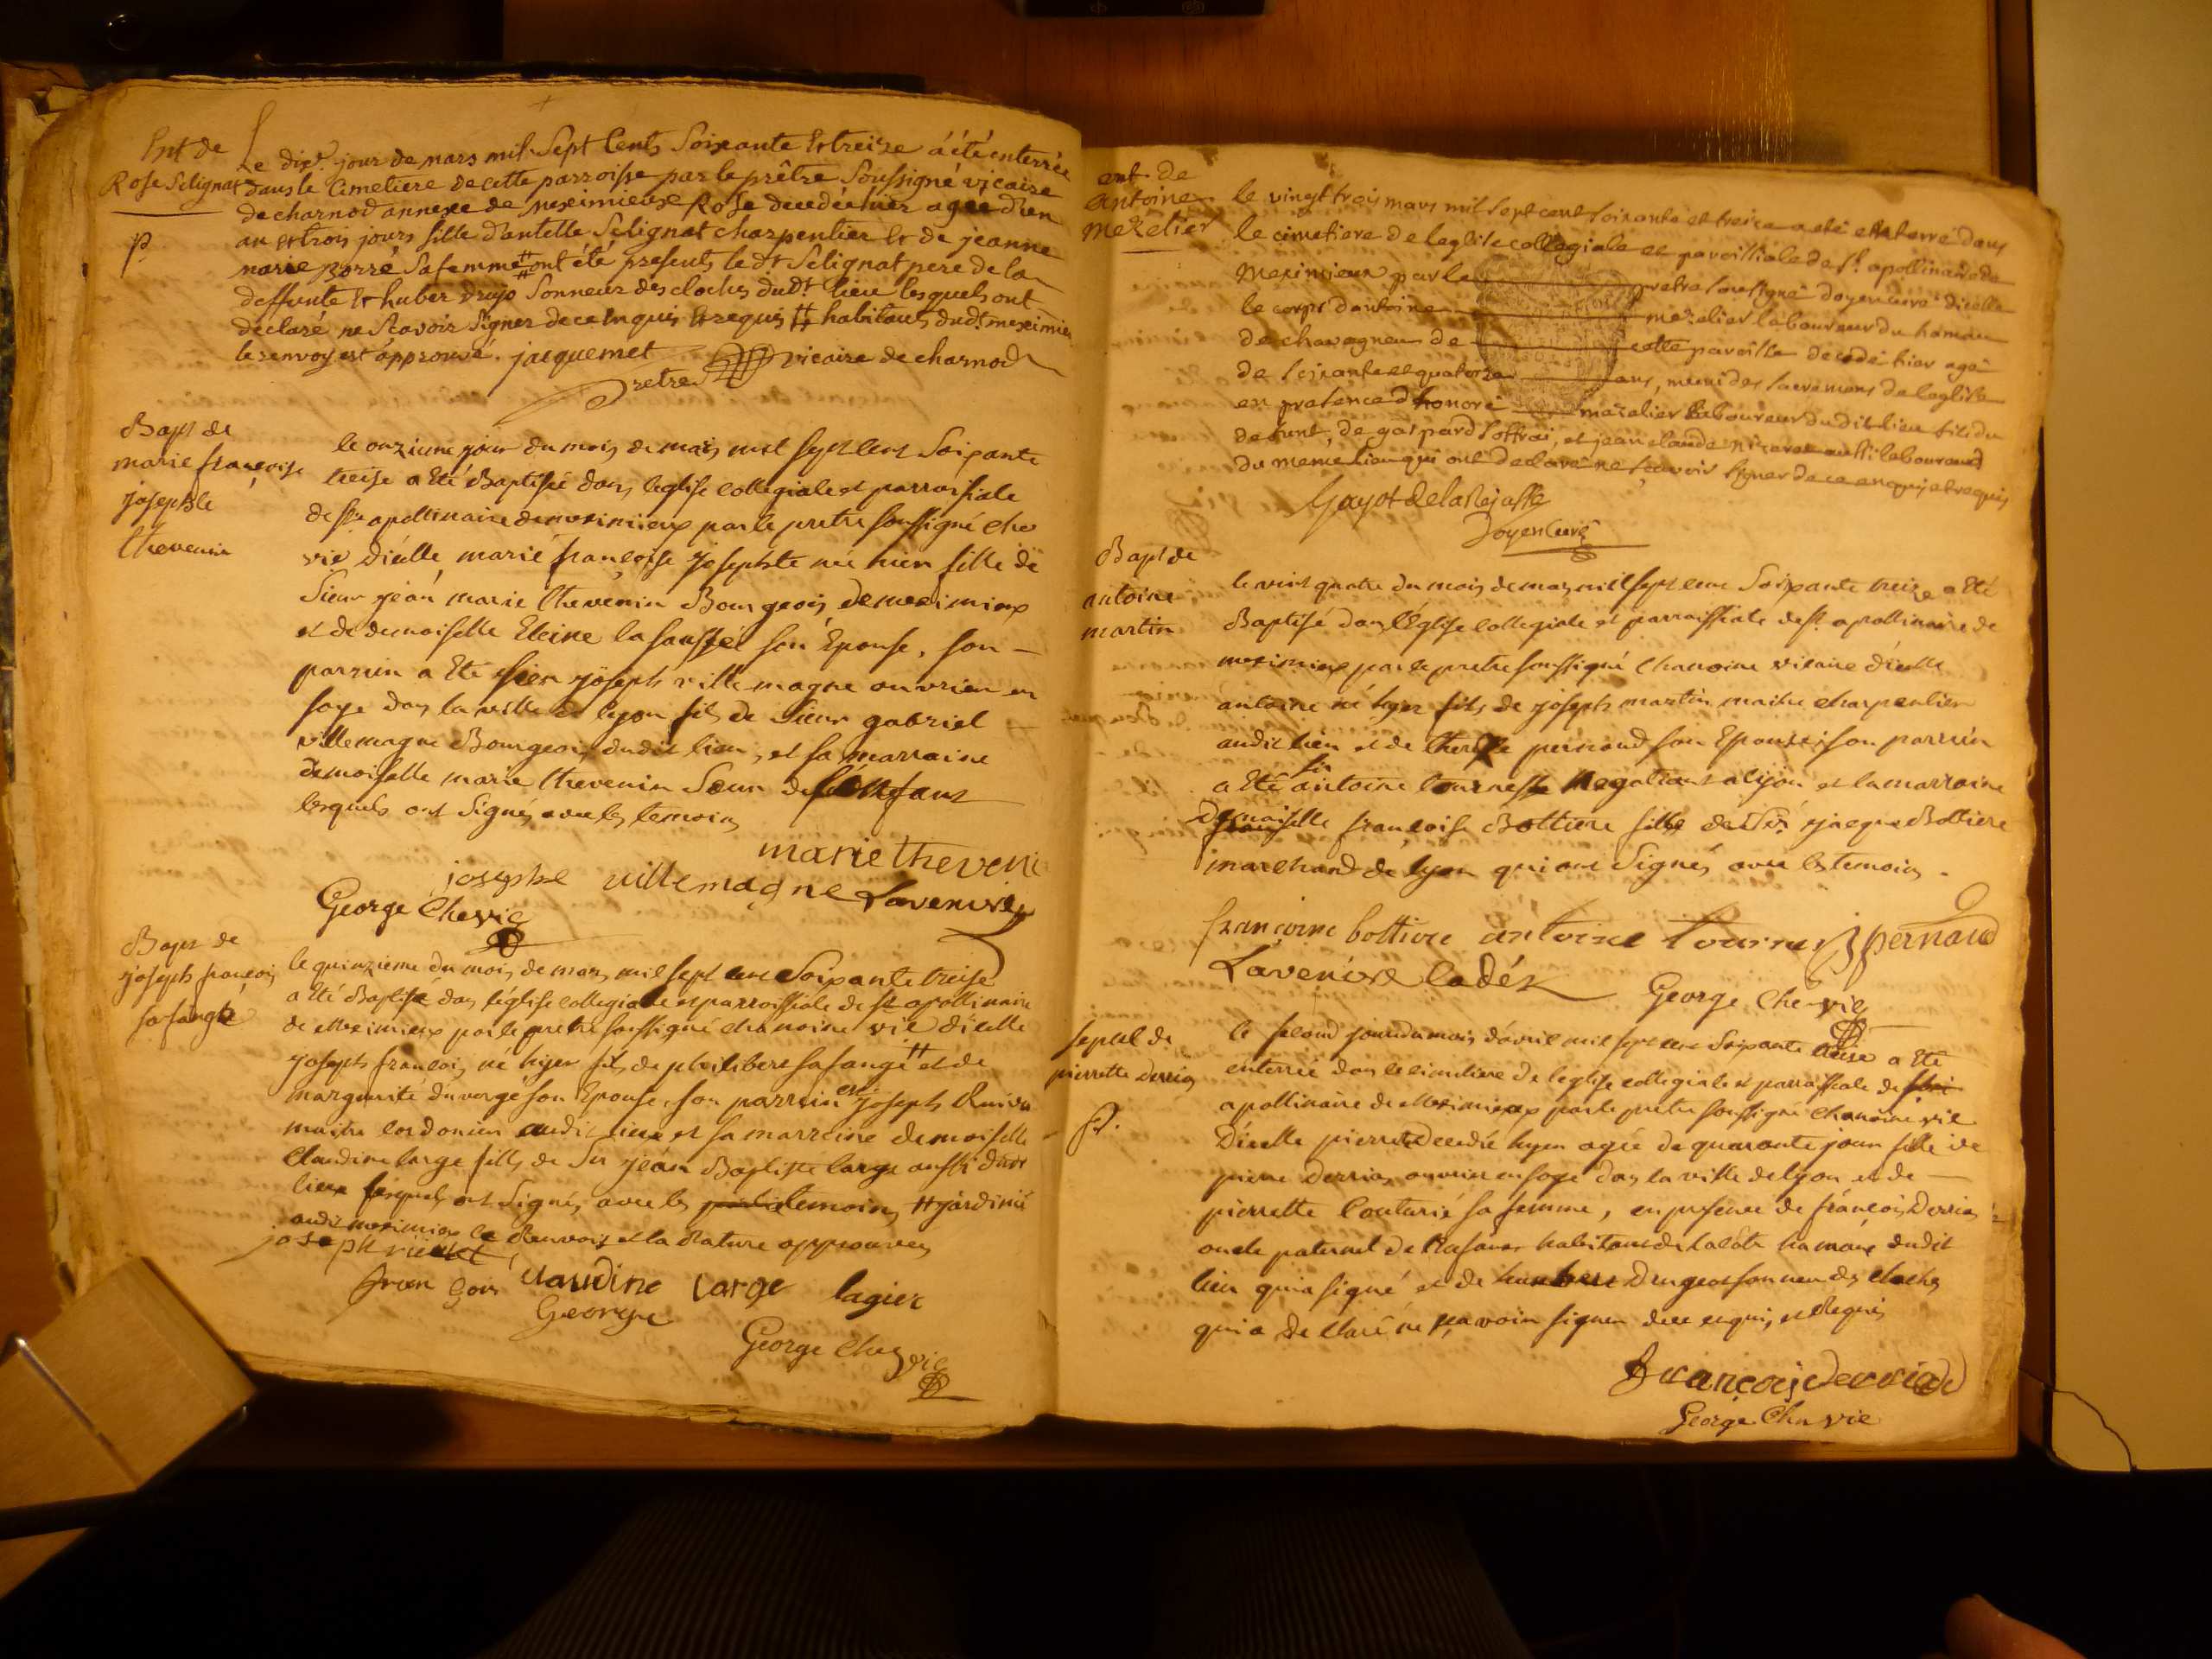 Ent de
Rose Selignat
p.
Le dixe. jour de mars mil Sept Cents Soixante et treize a été enterrée
dans le Cimetiere de cette parroisse par le prêtre Soussigné vicaire
de charnod annexe de meximieux Rose decedée hier agée d'un
an et trois jours fille d'antelle Selignat charpentier et de jeanne
marie porré Sa femme # ont été presents le dt Selignat pere de la
deffunte et huber drujo Sonneur des cloches dudt. lieu lesquels ont
declaré ne Scavoir Signer de ce enquis et requis # habitants dudt. meximieu
le renvoy est approuvé. jacquemet vicaire de charnod
pretre
Bapt de
marie françoise
josephte
thevenin
le onzieme jour du mois de mars mil sept cent Soixante
treise a Eté Baptisée dans leglise collegiale et parroissiale
de st apollinaire de meximieux par le pretre soussigné cha
vic d'icelle, marie françoise josephte née hier fille de
Sieur jean marie thevenin Bourgeois de meximieux
et de demoiselle Eleine la saussée son Epouse, son
parrein a Eté sieur joseph ville magne ouvrier en
soye dans la ville de lyon fils de Sieur gabriel
villemagne Bourgeois dudit lieu, et sa marraine
demoiselle marie thevenin Sœur de l'enfant
lesquels ont Signés avec les temoins
marie theveni
josephe villemagne Lavenire
George Che vic
Bapt de
joseph françois
safangé
le quinzieme du mois de mars mil sept cent Soixante treise
a Eté Baptisé dans l'église collegiale et parroissiale de st apollinaire
de Meximieux par le pretre soussigné chanoine vic d'icelle
joseph françois né hyer fils de philibert safangé # et de
marguerite du vergé son Epouse, son parrein est joseph
maitre cordonier audit lieu et sa marreine demoiselle
Claudine large fille de Sr jean Baptiste large aussi dudt
lieux lesquels ont Signés avec les temoins # jardinié
audit meximieux le Renvois et la Rature approuvés
joseph
claudine Large lagier
George
George Che vic
ent de
antoine
mezelier
le vingt trois mars mil sept cent soixante et treize a eté enterré dans
le cimetiere de leglise collegiale et paroissiale de st. apollinaire de
Meximieux par le pretre soussigné doyen curé dicelle
le corps d'antoine mezelier laboureur du hameau
de chavagneu de cette paroisse decedé hier agé
de soixante et quatorze ans, muni des sacremens de leglise
en presence d'honoré mezelier laboureur du dit lieu fils du
defunt, de gaspard loffrai, et jean claude aussi laboureurs
du meme lieu qui ont declare ne sçavoir signer de ce enquis et requis
Gayot de la Rejasse
Doyen Curé
Bapt de
antoine
martin
le vint quatre du mois de mars mil sept cent Soixante treize a Eté
Baptisé dans l'Eglise collegiale et parroissiale de st. apollinaire de
meximieux par le pretre soussigné chanoine vicaire d'icelle
antoine né hyer fils de joseph martin maitre charpentier
audit lieu et de therese pernaud son Epouse, son parrein
a Eté sr antoine tournesse negotiant a lyon et la marraine
Demoiselle françoise Bottiere fille de Sr. jacque Bottiere
marchand de lyon qui ont Signés avec les temoins.
françoise bottiere antoine tourne pernaud
Lavenire ladé
George Che vic
sepul de
pierrette derria
p.
le second jour du mois d'avril mil sept cent Soixante treise a Eté
enterrée dans le cimetiere de l'eglise collegiale et parroissiale de
apollinaire de Meximieux par le pretre soussigné chanoine vic
D'icelle pierrette decedée hyer agée de quarante jour fille de
pierre derria ouvrier en soye dans la ville de lyon et de
pierrette Couturié sa femme, en presence de françois Derria
oncle paternel de habitant de la côte hameau dudit
lieu qui a signé et de humbert Drugeot sonneur des cloches
qui a declaré ne sçavoir signer de ce enquis et Requis
françois derriad
George Cha vic